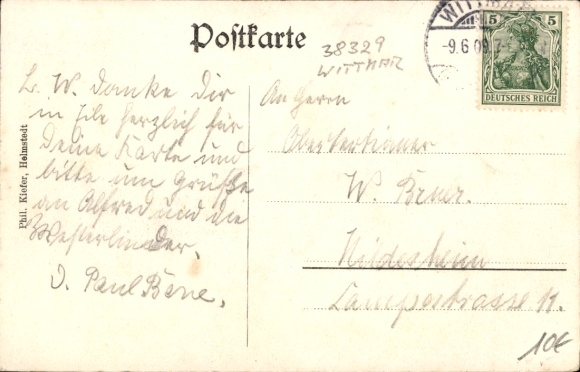 Postkarte
38329
WITTMAR
-9.6.09.7-
5 5
DEUTSCHES REICH
L. W. danke Dir
in Eile herzlich für
Deine Karte und
bitte um Grüße
an Alfred und die
Westerlinder.
D. Paul Bene.
An Herrn
Obertertianer
W.
Hildesheim
strasse 11.
Phil. Kiefer, Helmstedt
10€